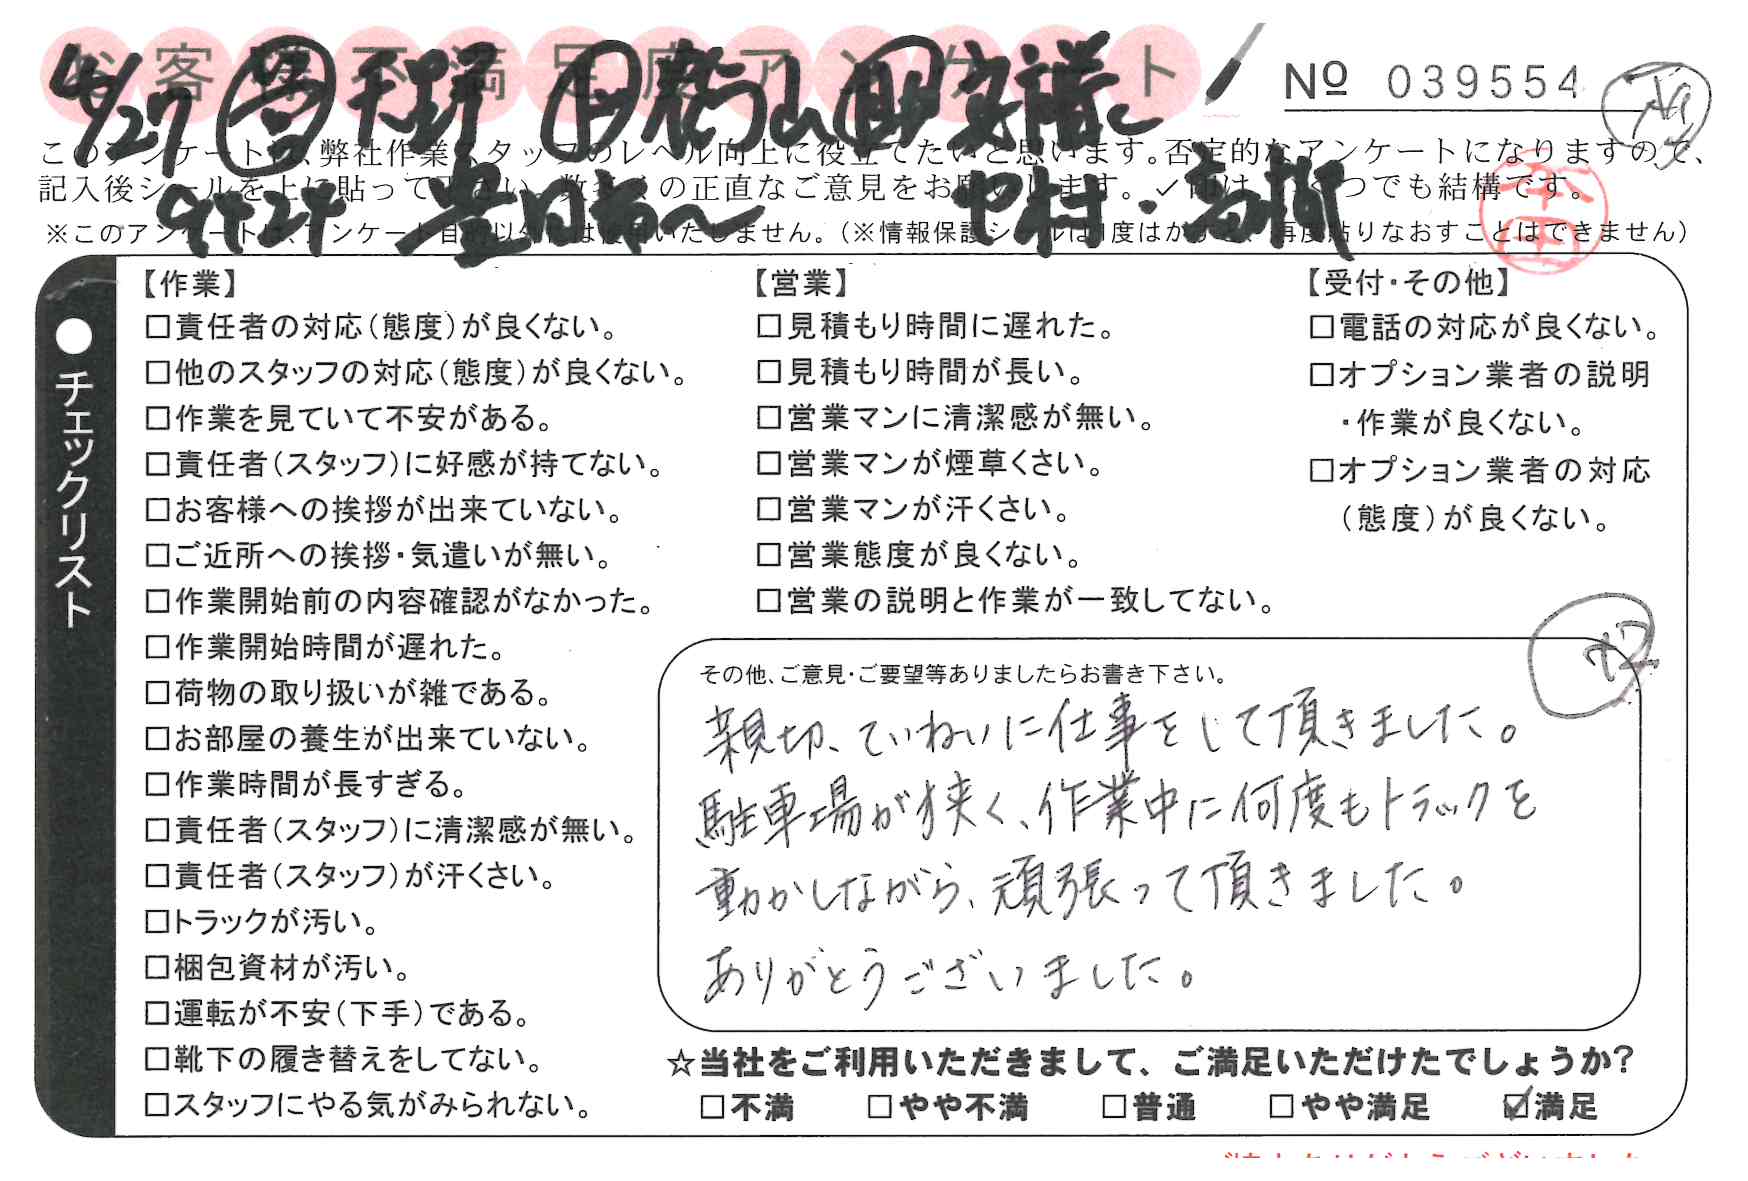 お客様不満足度アンケート
№ 039554
4/27 天野
このアンケートは、弊社作業スタッフのレベル向上に役立てたいと思います。否定的なアンケートになりますので、
記入後シールを上に貼って下さい。数多くの正直なご意見をお願いします。✓印はいくつでも結構です。
※このアンケートは、アンケート目的以外には使用いたしません。(※情報保護シールは1度はがすと、再度貼りなおすことはできません)
中村・高橋
本田
●チェックリスト
【作業】
□責任者の対応(態度)が良くない。
□他のスタッフの対応(態度)が良くない。
□作業を見ていて不安がある。
□責任者(スタッフ)に好感が持てない。
□お客様への挨拶が出来ていない。
□ご近所への挨拶・気遣いが無い。
□作業開始前の内容確認がなかった。
□作業開始時間が遅れた。
□荷物の取り扱いが雑である。
□お部屋の養生が出来ていない。
□作業時間が長すぎる。
□責任者(スタッフ)に清潔感が無い。
□責任者(スタッフ)が汗くさい。
□トラックが汚い。
□梱包資材が汚い。
□運転が不安(下手)である。
□靴下の履き替えをしてない。
□スタッフにやる気がみられない。
【営業】
□見積もり時間に遅れた。
□見積もり時間が長い。
□営業マンに清潔感が無い。
□営業マンが煙草くさい。
□営業マンが汗くさい。
□営業態度が良くない。
□営業の説明と作業が一致してない。
【受付・その他】
□電話の対応が良くない。
□オプション業者の説明
・作業が良くない。
□オプション業者の対応
(態度)が良くない。
その他、ご意見・ご要望等ありましたらお書き下さい。
親切、ていねいに仕事をして頂きました。
駐車場が狭く、作業中に何度もトラックを
動かしながら、頑張って頂きました。
ありがとうございました。
☆当社をご利用いただきまして、ご満足いただけたでしょうか?
□不満 □やや不満 □普通 □やや満足 ☑満足